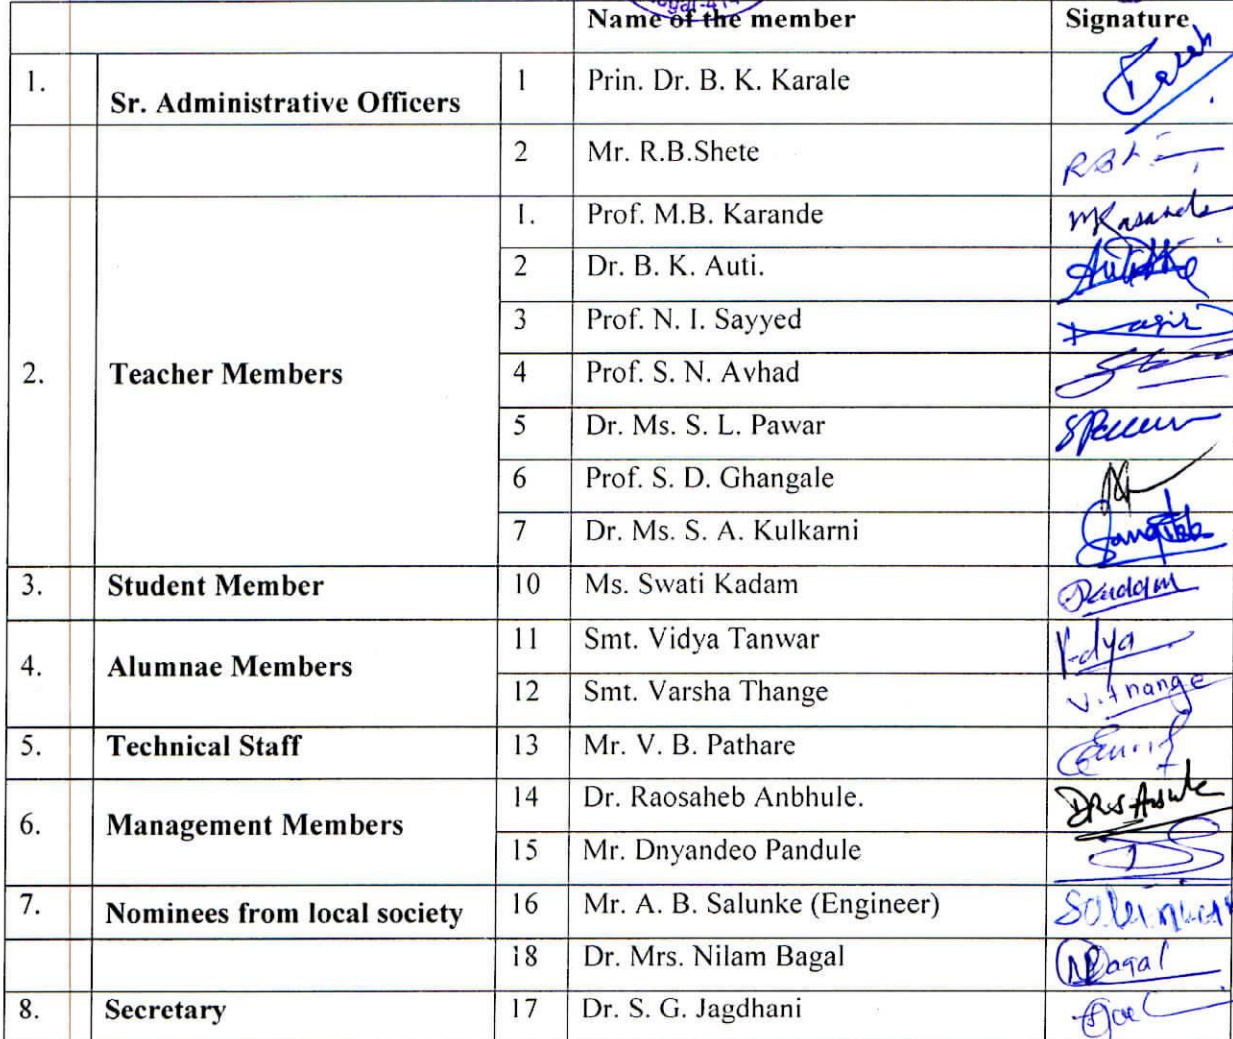 Name of the member Signature
1. Sr. Administrative Officers 1 Prin. Dr. B. K. Karale
2 Mr. R.B.Shete
2. Teacher Members 1. Prof. M.B. Karande
2 Dr. B. K. Auti.
3 Prof. N. I. Sayyed
4 Prof. S. N. Avhad
5 Dr. Ms. S. L. Pawar
6 Prof. S. D. Ghangale
7 Dr. Ms. S. A. Kulkarni
3. Student Member 10 Ms. Swati Kadam
4. Alumnae Members 11 Smt. Vidya Tanwar
12 Smt. Varsha Thange V.Thange
5. Technical Staff 13 Mr. V. B. Pathare
6. Management Members 14 Dr. Raosaheb Anbhule.
15 Mr. Dnyandeo Pandule
7. Nominees from local society 16 Mr. A. B. Salunke (Engineer)
18 Dr. Mrs. Nilam Bagal
8. Secretary 17 Dr. S. G. Jagdhani